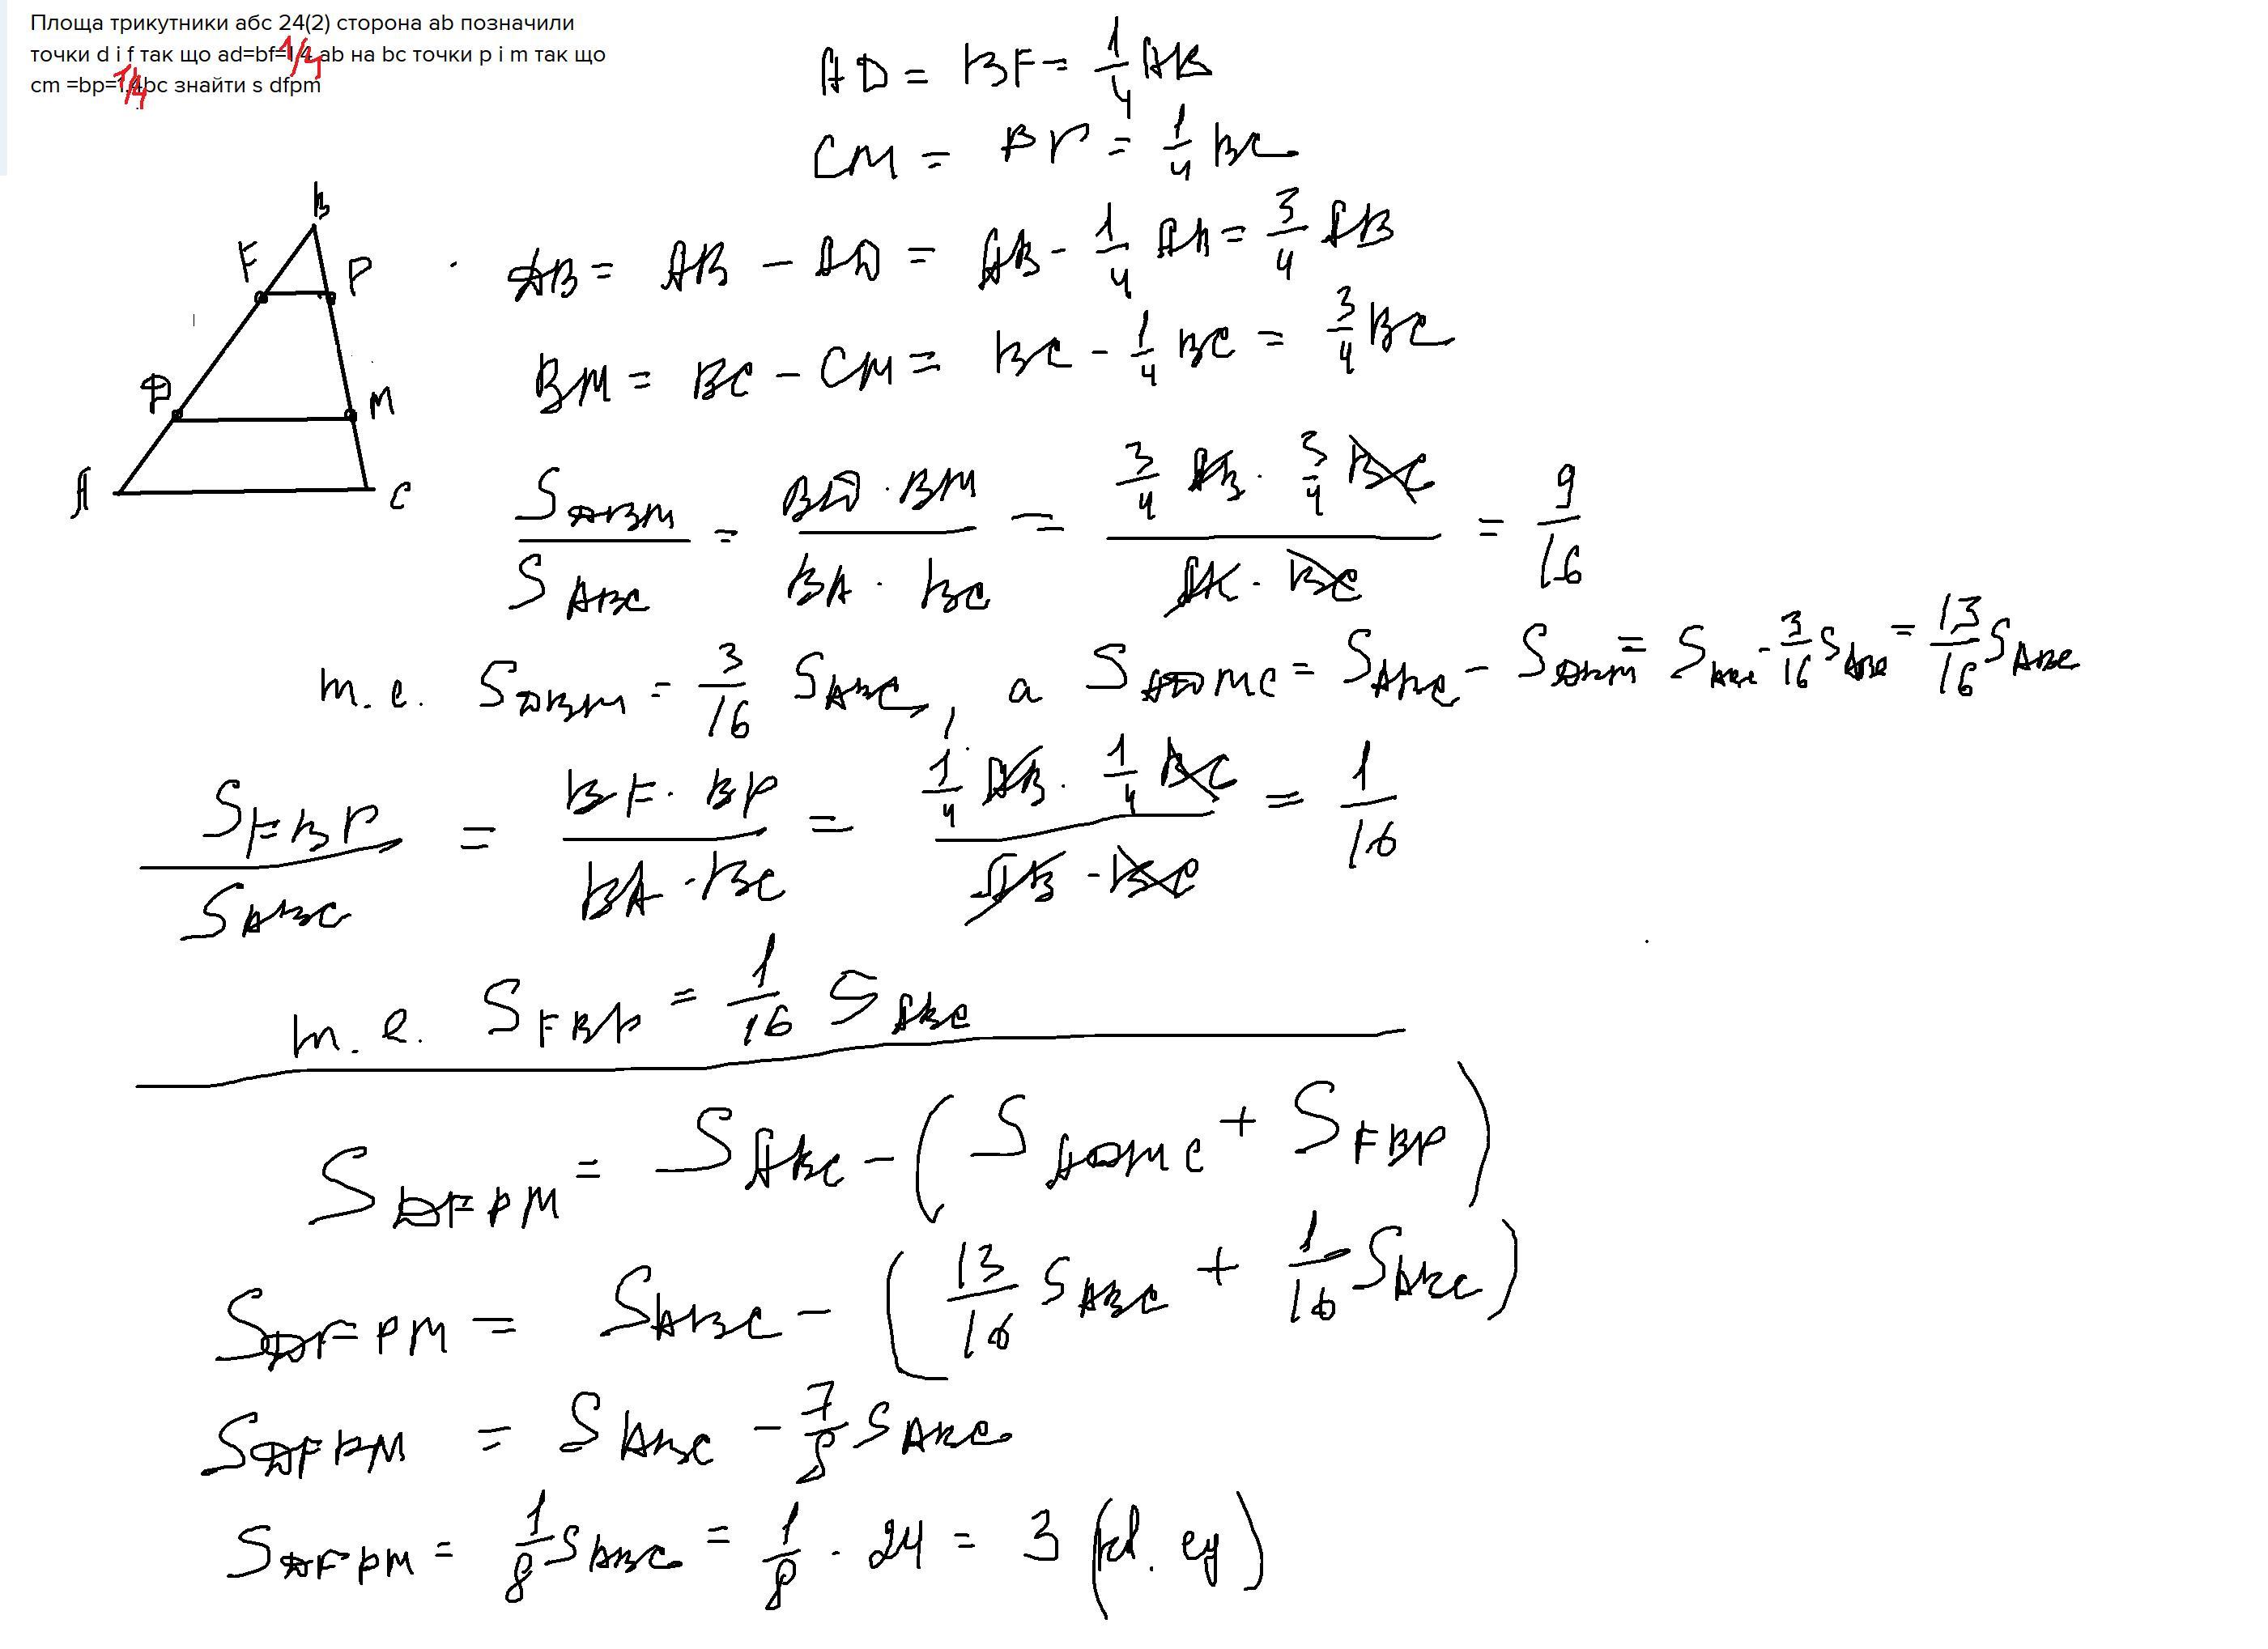 Площа трикутники абс 24(2) сторона ab позначили
точки d і f так що ad=bf=1/4 ab на bc точки p і m так що
cm =bp=1/4bc знайти s dfpm
AD = BF = 1/4 AB
CM = BP = 1/4 BC
B
F P
D M
A C
DB = AB - AD = AB - 1/4 AB = 3/4 AB
BM = BC - CM = BC - 1/4 BC = 3/4 BC
S DBM / S ABC = BD · BM / BA · BC = 3/4 AB · 3/4 BC / AB · BC = 9/16
т.е. S DBM = 3/16 S ABC, а S ADMC = S ABC - S DBM = S ABC - 3/16 S ABC = 13/16 S ABC
S FBP / S ABC = BF · BP / BA · BC = 1/4 AB · 1/4 BC / AB · BC = 1/16
т.е. S FBP = 1/16 S ABC
S DFPM = S ABC - (S ADMC + S FBP)
S DFPM = S ABC - (13/16 S ABC + 1/16 S ABC)
S DFPM = S ABC - 7/8 S ABC
S DFPM = 1/8 S ABC = 1/8 · 24 = 3 (kd. ey)